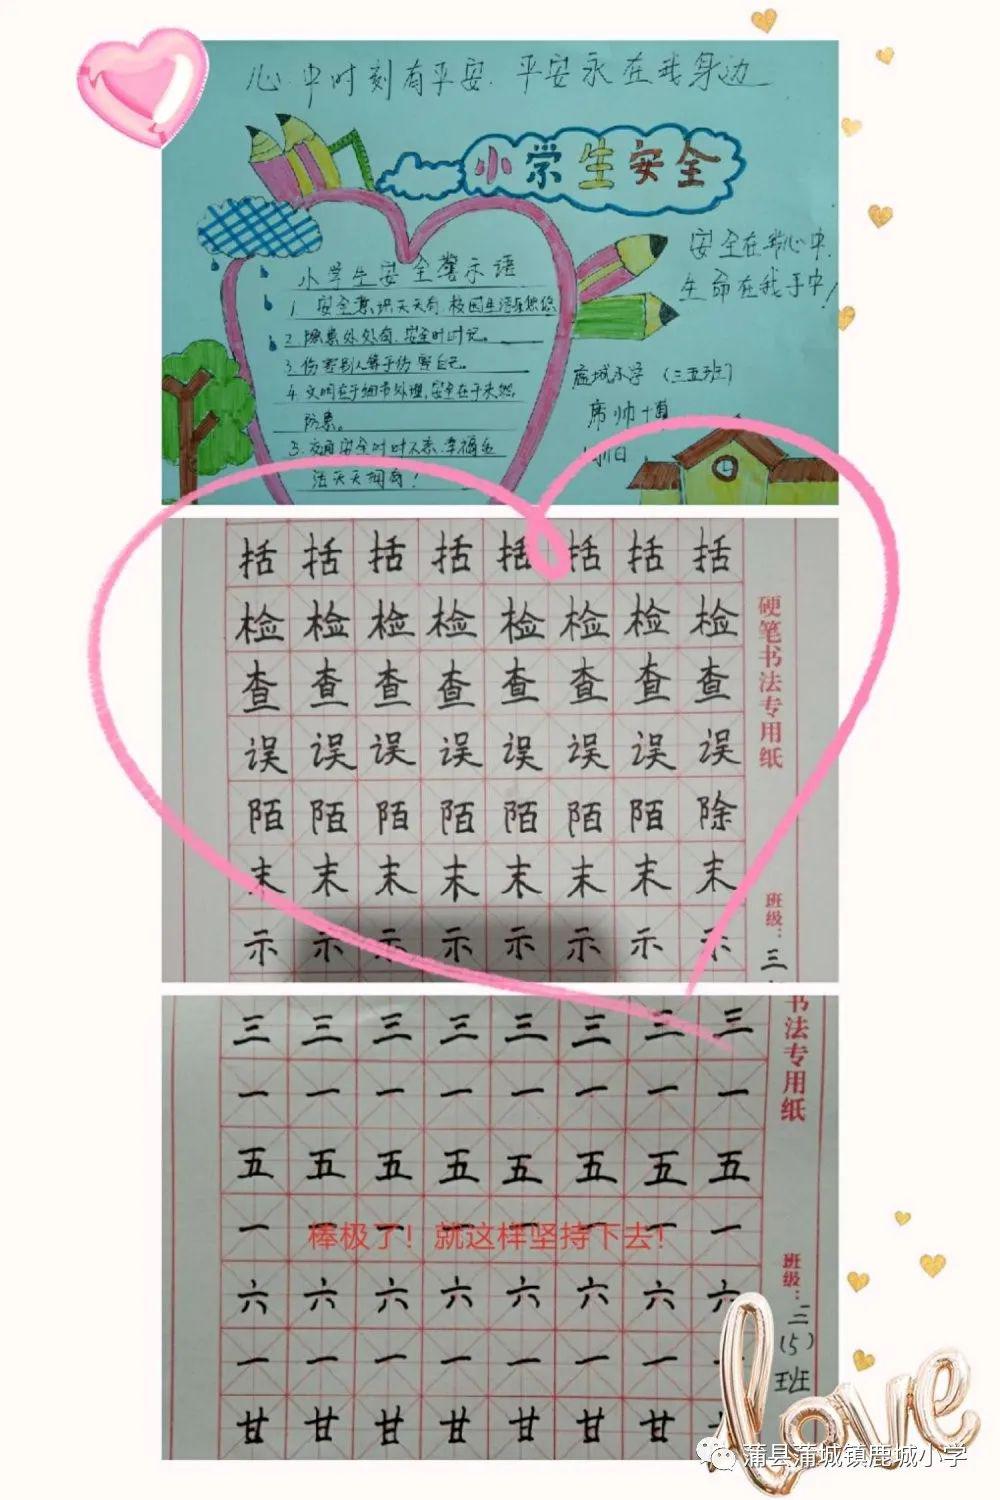 心中时刻有平安.平安永在我身边
小学生安全
安全在我心中.
生命在我手中!
小学生安全警示语
1. 安全意识天天有.校园生活乐悠悠
2.隐患处处有,安全时时记。
3.伤害别人等于伤害自己。
4.文明在于细节处理,安全在于未然
防患。
5.交通安全时时不忘.幸福生
活天天拥有!
鹿城小学 (三五班)
席帅博
括括括括括括括括
检检检检检检检检
查查查查查查查查
误误误误误误误误
陌陌陌陌陌陌陌除
末末末末末末末末
示示示示示示示示
硬笔书法专用纸
班级:
三
三三三三三三三三
一一一一一一一一
五五五五五五五五
一 一
棒极了!就这样坚持下去!
六六六六六六六六
一一一一一一一
甘甘甘甘甘甘甘
书法专用纸
班级:
三
(5)
班
love
蒲县蒲城镇鹿城小学